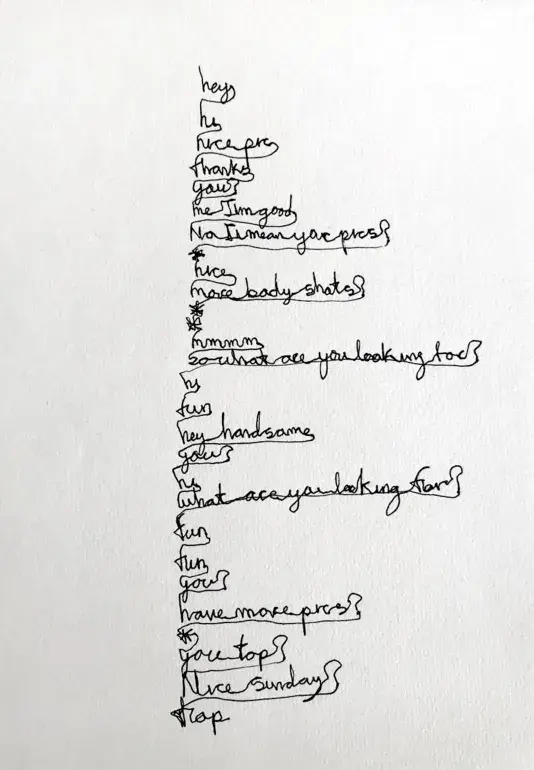 hey
hi
nice pic
thanks
you?
me I'm good
No I mean your pics?
*
nice
more body shots?
**
mmmm
so what are you looking for?
hi
fun
hey handsome
you?
hi
what are you looking for?
fun
fun
you?
have more pics?
*
you top?
Nice sunday?